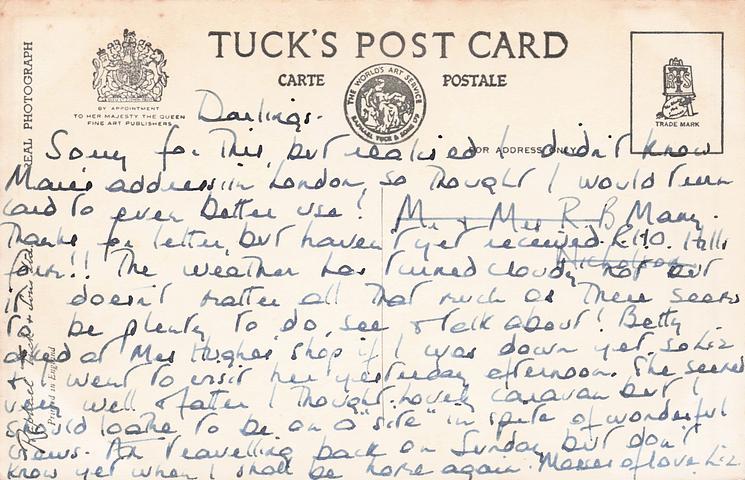 TUCK'S POST CARD
CARTE POSTALE
BY APPOINTMENT
TO HER MAJESTY THE QUEEN
FINE ART PUBLISHERS
THE WORLD'S ART SERVICE
RAPHAEL TUCK & SONS LTD
TRADE MARK
REAL PHOTOGRAPH
FOR ADDRESS ONLY
Raphael Tuck & Sons Ltd.
Printed in England
Darlings.
Sorry for this, but realised I didn't know
address in London, so thought I would turn
card to even better use! Mr. & Mrs R. B Many.
Thanks for letter, but haven't yet received Hills
Nicholson
The weather has turned cloudy, not but
doesn't matter all that much as there seems
to be plenty to do, see & talk about! Betty
asked at Mrs Hughes' shop if I was down yet, so Liz
& I went to visit her yesterday afternoon. She seemed
very well & fatter I thought, lovely caravan but I
should loathe to be on a "site" in spite of wonderful
views. Am travelling back on Sunday but don't
know yet when I shall be home again. Masses of love, Liz